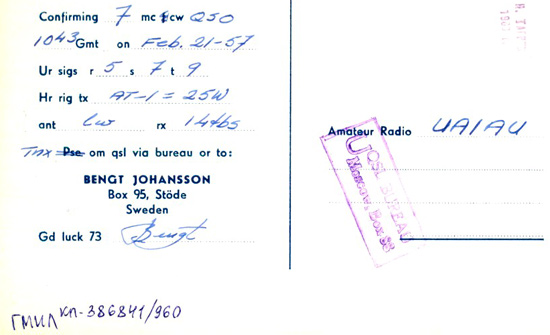 Confirming 7 mc cw QSO
1043 Gmt on Feb. 21-57
Ur sigs r 5 s 7 t 9
Hr rig tx AT-1 = 25W
ant lw rx 14tbs
Tnx Pse om qsl via bureau or to:
BENGT JOHANSSON
Box 95, Stöde
Sweden
Gd luck 73 Bengt
Amateur Radio UA1AU
QSL BUREAU
Moscow, Box 88
ГМИЛ КП-386841/960